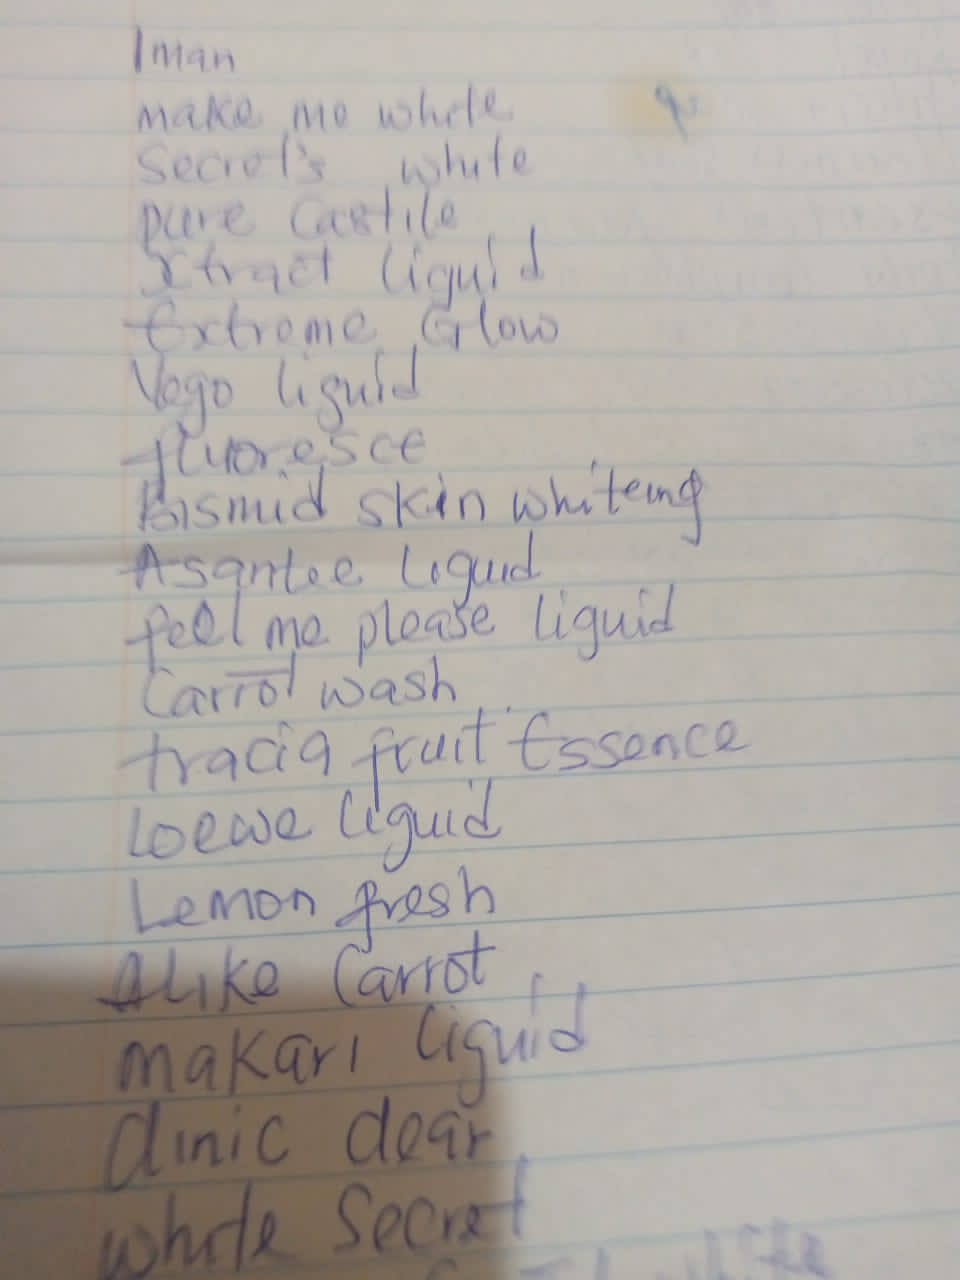 Iman
make me white
Secret's white
pure Castile
Xtract liquid
Extreme Glow
Vego liquid
fluoresce
Bismid skin whiteing
Asantee liquid
feel me please liquid
Carrot wash
tracia fruit Essence
Loewe liquid
Lemon fresh
ALike Carrot
makari liquid
clinic clear
white Secret